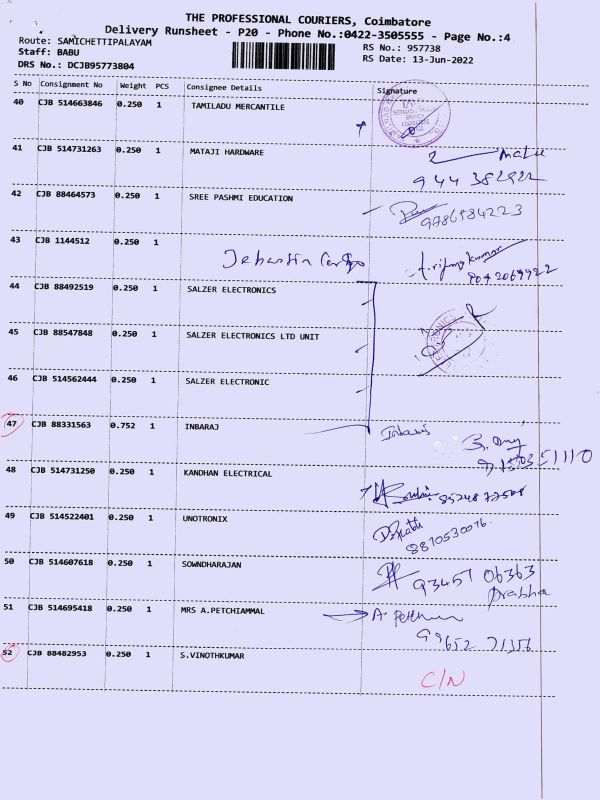 THE PROFESSIONAL COURIERS, Coimbatore
Delivery Runsheet - P20 - Phone No.:0422-3505555 - Page No.:4
Route: SAMICHETTIPALAYAM
RS No.: 957738
Staff: BABU
RS Date: 13-Jun-2022
DRS No.: DCJB95773804
S No Consignment No Weight PCS Consignee Details Signature
40 CJB 514663846 0.250 1 TAMILADU MERCANTILE
BRANCH
41 CJB 514731263 0.250 1 MATAJI HARDWARE
944 382922
42 CJB 88464573 0.250 1 SREE PASHMI EDUCATION
9786984223
43 CJB 1144512 0.250 1
9042069922
44 CJB 88492519 0.250 1 SALZER ELECTRONICS
45 CJB 88547848 0.250 1 SALZER ELECTRONICS LTD UNIT
46 CJB 514562444 0.250 1 SALZER ELECTRONIC
47 CJB 88331563 0.752 1 INBARAJ
48 CJB 514731250 0.250 1 KANDHAN ELECTRICAL
49 CJB 514522401 0.250 1 UNOTRONIX
8870530076.
50 CJB 514607618 0.250 1 SOWNDHARAJAN
93457 06363
Prabha
51 CJB 514695418 0.250 1 MRS A.PETCHIAMMAL
99652 71356
52 CJB 88482953 0.250 1 S.VINOTHKUMAR
C/N